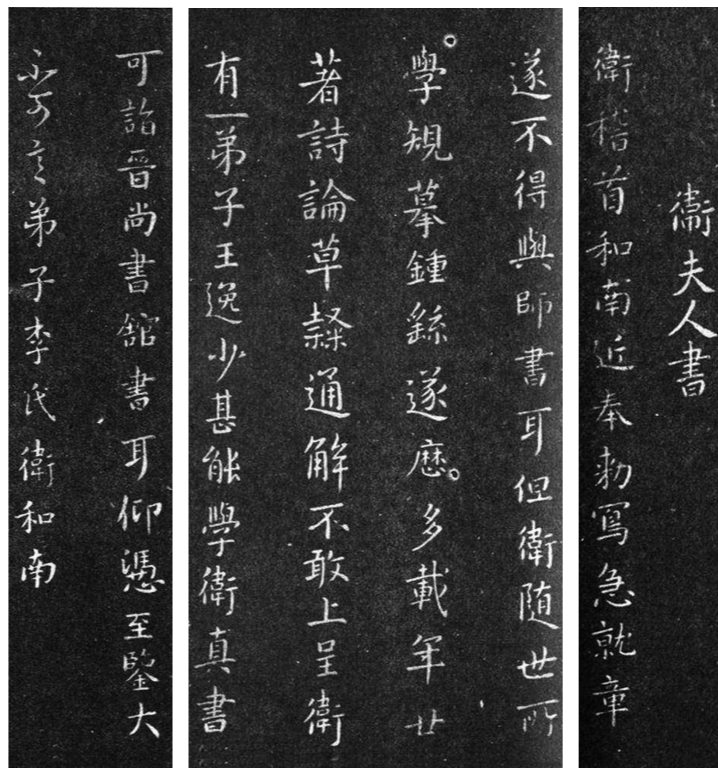 衛夫人書
衛稽首和南近奉勑寫急就章
遂不得與師書耳但衛随世所
學規摹鍾繇遂歷多載年廿
著詩論草隸通解不敢上呈衛
有一弟子王逸少甚能學衛真書
可詣晉尚書舘書耳仰憑至鑒大
不可言弟子李氏衛和南